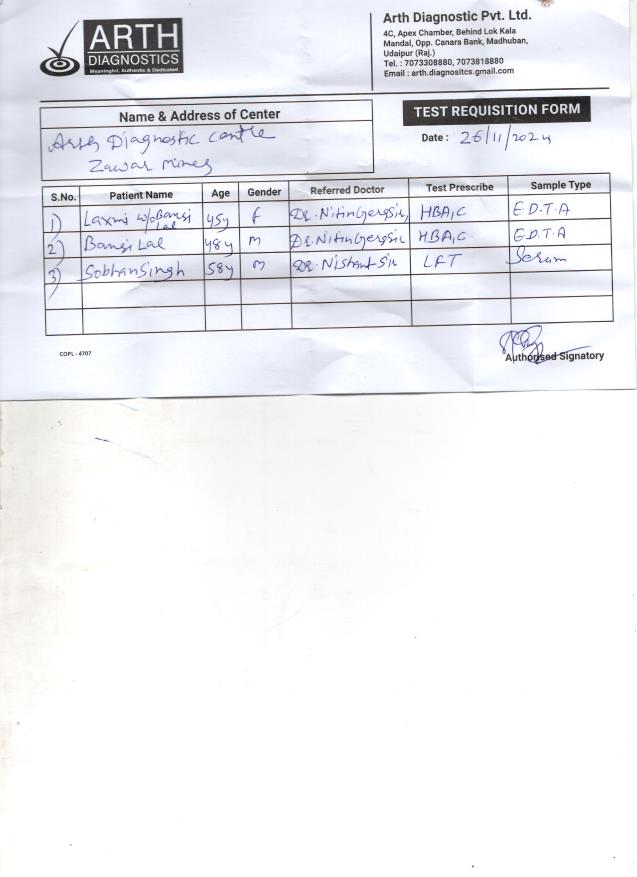 ARTH
DIAGNOSTICS
Meaningful, Authentic & Dedicated
Arth Diagnostic Pvt. Ltd.
4C, Apex Chamber, Behind Lok Kala
Mandal, Opp. Canara Bank, Madhuban,
Udaipur (Raj.)
Tel. : 7073308880, 7073818880
Email : arth.diagnositcs.gmail.com
Name & Address of Center
Arth Diagnostic Centre
Zawar Mines
TEST REQUISITION FORM
Date : 26/11/2024
S.No. Patient Name Age Gender Referred Doctor Test Prescribe Sample Type
1) Laxmi w/o Bansi Lal 45y F Dr. Nitin HBA1C E.D.T.A
2) Bansi Lal 48y M Dr. Nitin HBA1C E.D.T.A
3) Sobhan Singh 58y M Dr. Nishant Sir LFT Serum
COPL - 4707
Authorised Signatory